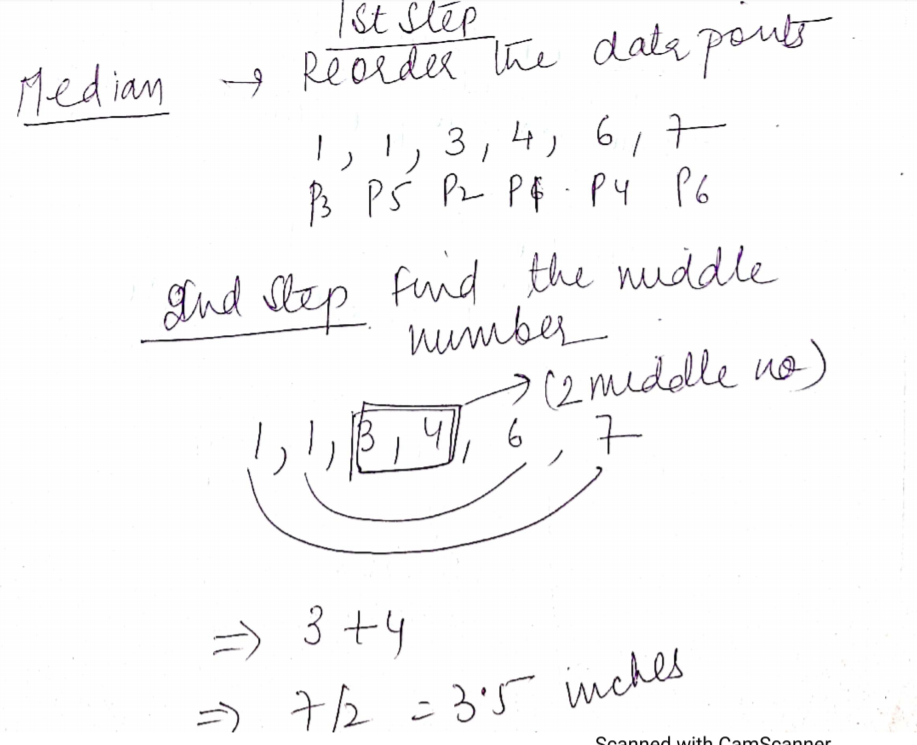 1st step
Median → Reorder the data points
1, 1, 3, 4, 6, 7
P3 P5 P2 P1 P4 P6
2nd step find the middle
number
→ (2 middle no)
1, 1, 3, 4, 6, 7
⇒ 3+4
⇒ 7/2 = 3.5 inches
Scanned with CamScanner